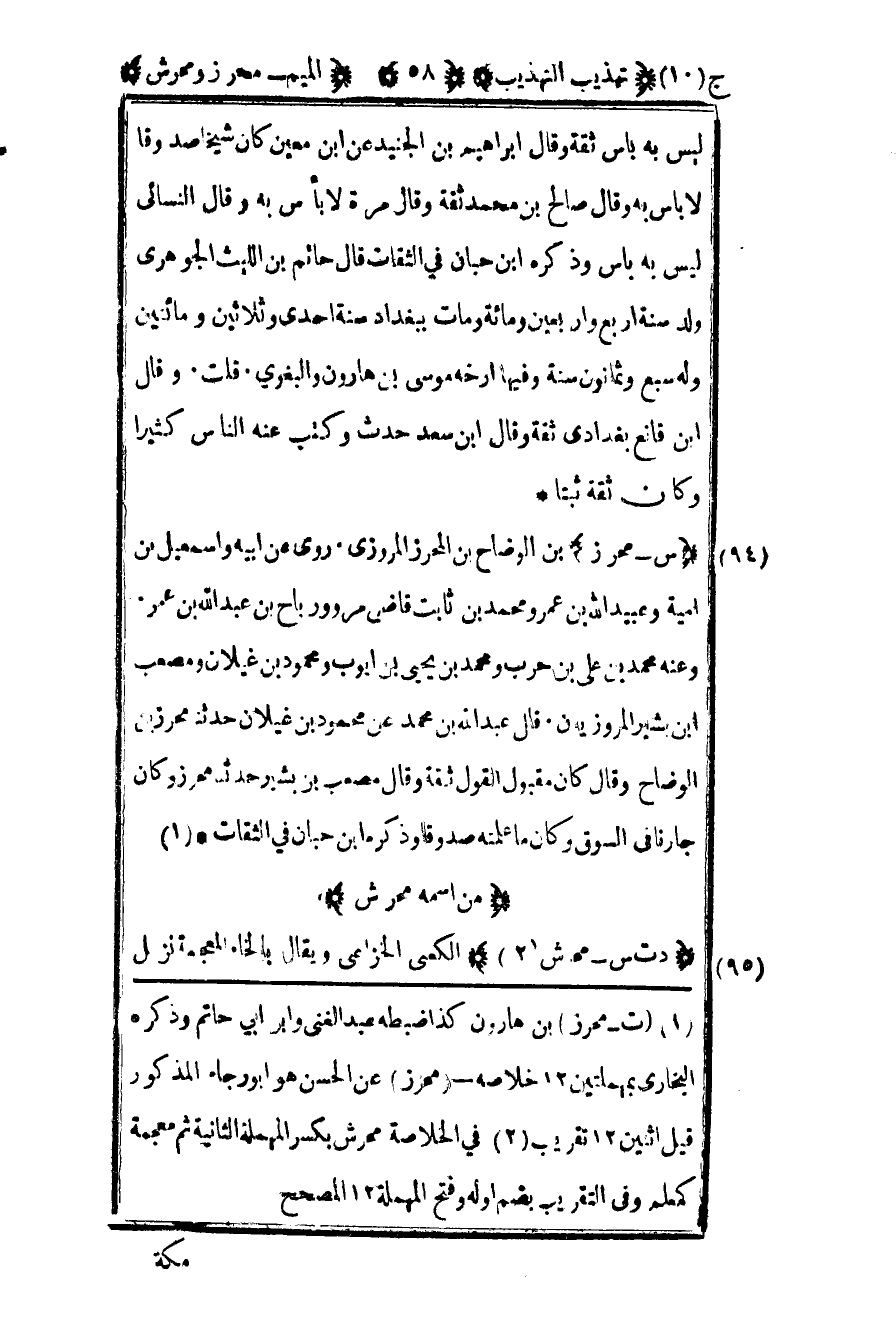 ج(١٠) ﴿ تهذيب التهذيب ﴾ ﴿ ٥٨ ﴾ ﴿ الميم ـ محرز ومحرش ﴾
ليس به باس ثقة وقال ابراهيم بن الجنيد عن ابن معين كان شيخا صدوقا
لا باس به وقال صالح بن محمد ثقة وقال مرة لا بأس به وقال النسائى
ليس به باس وذكره ابن حبان في الثقات قال حاتم بن الليث الجوهرى
ولد سنة اربع واربعين ومائة ومات ببغداد سنة احدى وثلاثين ومائتين
وله سبع وثمانون سنة وفيها ارخه موسى بن هارون والبغوي · قلت · وقال
ابن قانع بغدادى ثقة وقال ابن سعد حدث وكتب عنه الناس كثيرا
وكان ثقة ثبتا *
(٩٤) ﴿ س ـ محرز ﴾ بن الوضاح بن المحرز المروزى · روى عن ابيه واسمعيل بن
امية وعبيد الله بن عمر ومحمد بن ثابت قاضى مرو ورباح بن عبد الله بن عمر ·
وعنه محمد بن على بن حرب ومحمد بن يحيى بن ايوب ومحمود بن غيلان ومصعب
ابن بشير المروزيون · قال عبدالله بن محمد عن محمود بن غيلان حدثنا محرز بن
الوضاح وقال كان مقبول القول ثقة وقال مصعب بن بشير حدثنا محرز وكان
جارنا فى السوق وكان ما علمته صدوقا وذكره ابن حبان في الثقات * (١)
﴿ من اسمه محرش ﴾
(٩٥) ﴿ دت س ـ محرش (٢) ﴾ الكعبى الخزاعى ويقال بالخاء المعجمة نزل
(١) (ت ـ محرز) بن هارون كذا ضبطه عبدالغنى وابن ابي حاتم وذكره
البخارى بمهملتين ١٢ خلاصه ـ (محرز) عن الحسن هو ابو رجاء المذكور
قبل اثنين ١٢ تقريب (٢) في الخلاصة محرش بكسر المهملة الثانية ثم معجمة
كمعلم وفى التقريب بضم اوله وفتح المهملة ١٢ المصحح
مكة